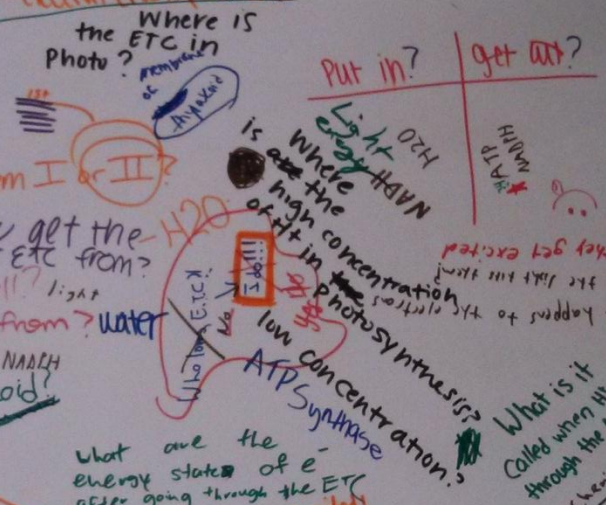 Where is
the ETC in
Photo?
membrane
of
thylakoid
Put in?
get out?
Light
energy
H2O
NADPH
ATP
NADPH
I or II?
get the
ETC from?
H2O
light
from? water
NADPH
oid?
is Where
are the
high concentration
of H+ in the photosynthesis?
low concentration?
Who loves ETC?
I do!!!
No
ATP Synthase
they get excited
the light hits them
happens to the electrons
What is it
called when H+
through the
what are the
energy state of e-
after going through the ETC